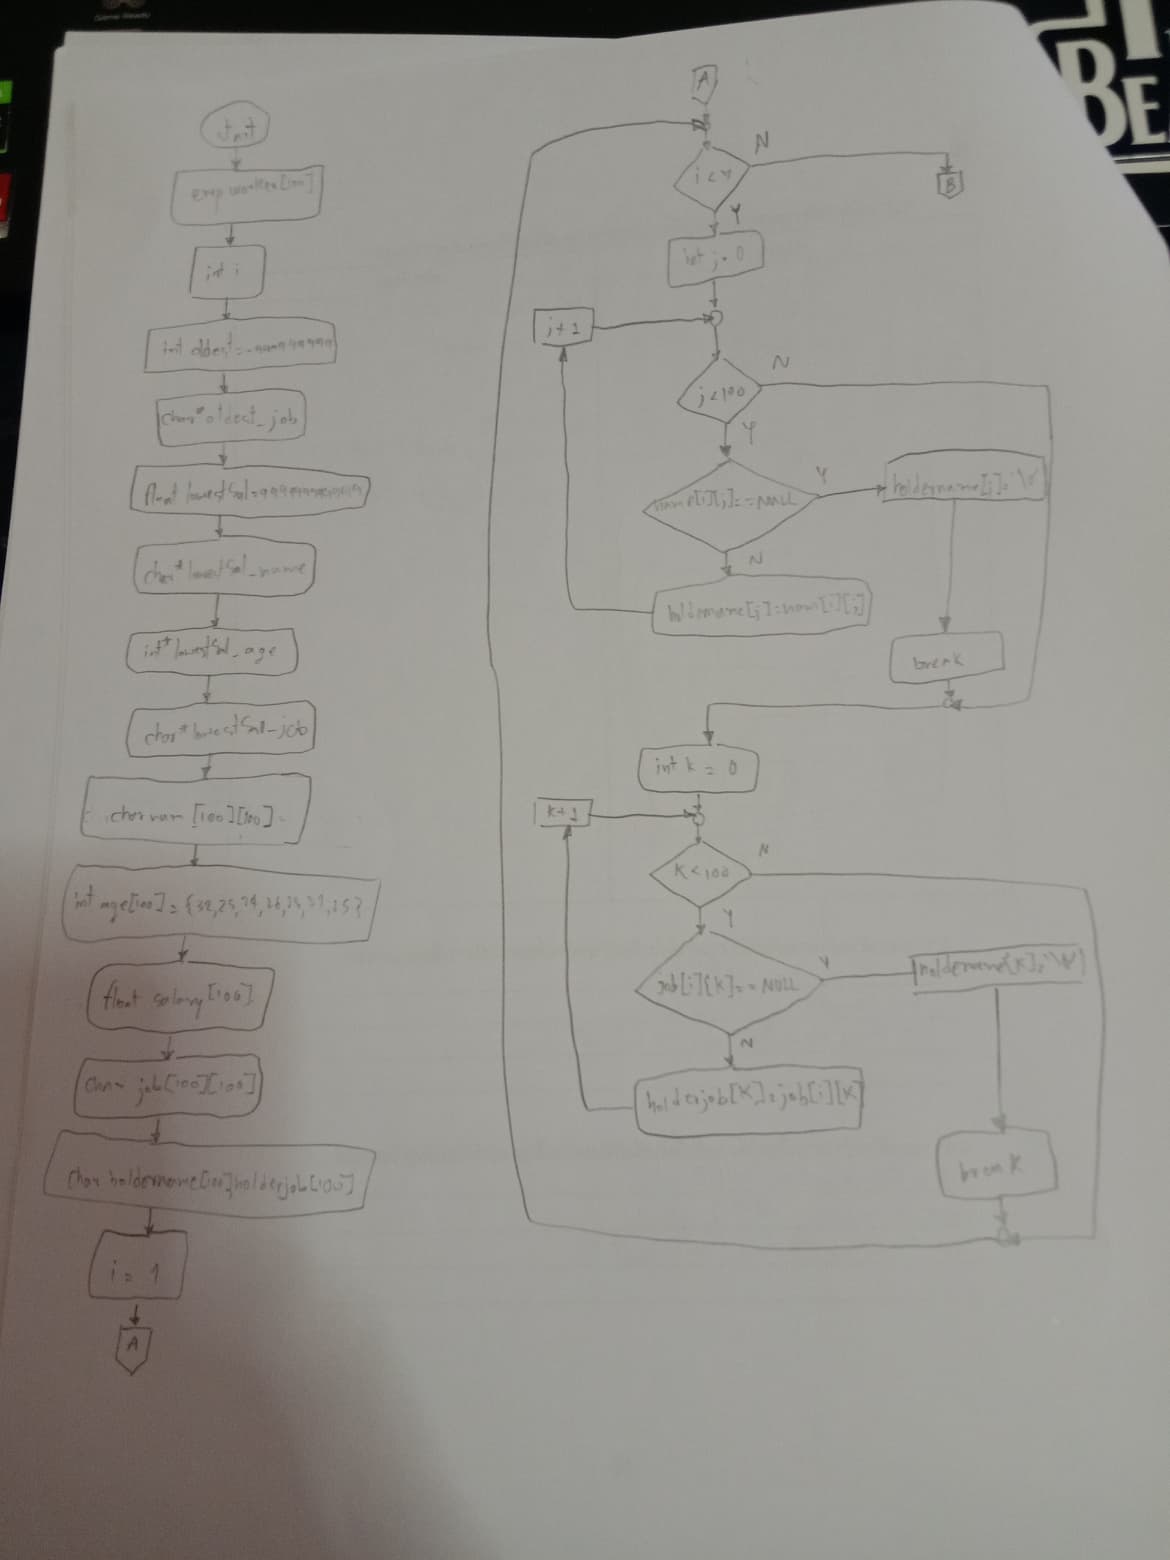 start
emp worker[100]
int i
int oldest=-999999999
char*oldest_job
float lowestSal=
char*lowestSal_name
int*lowestSal_age
char*lowestSal_job
char nam [100][100]
int age[100] =
float salary[100]
char job[100][100]
char holdername[100],holderjob[100]
i = 1
A
A
i<7
N
B
Y
int j=0
j+1
j<100
N
Y
[i][j]==NULL
Y
holdername[j]=
N
holdername[j]=nam[i][j]
break
int k = 0
k+1
K<100
N
Y
job[i][K]==NULL
Y
holdername[K]=
N
holderjob[K]=job[i][K]
break
BEA